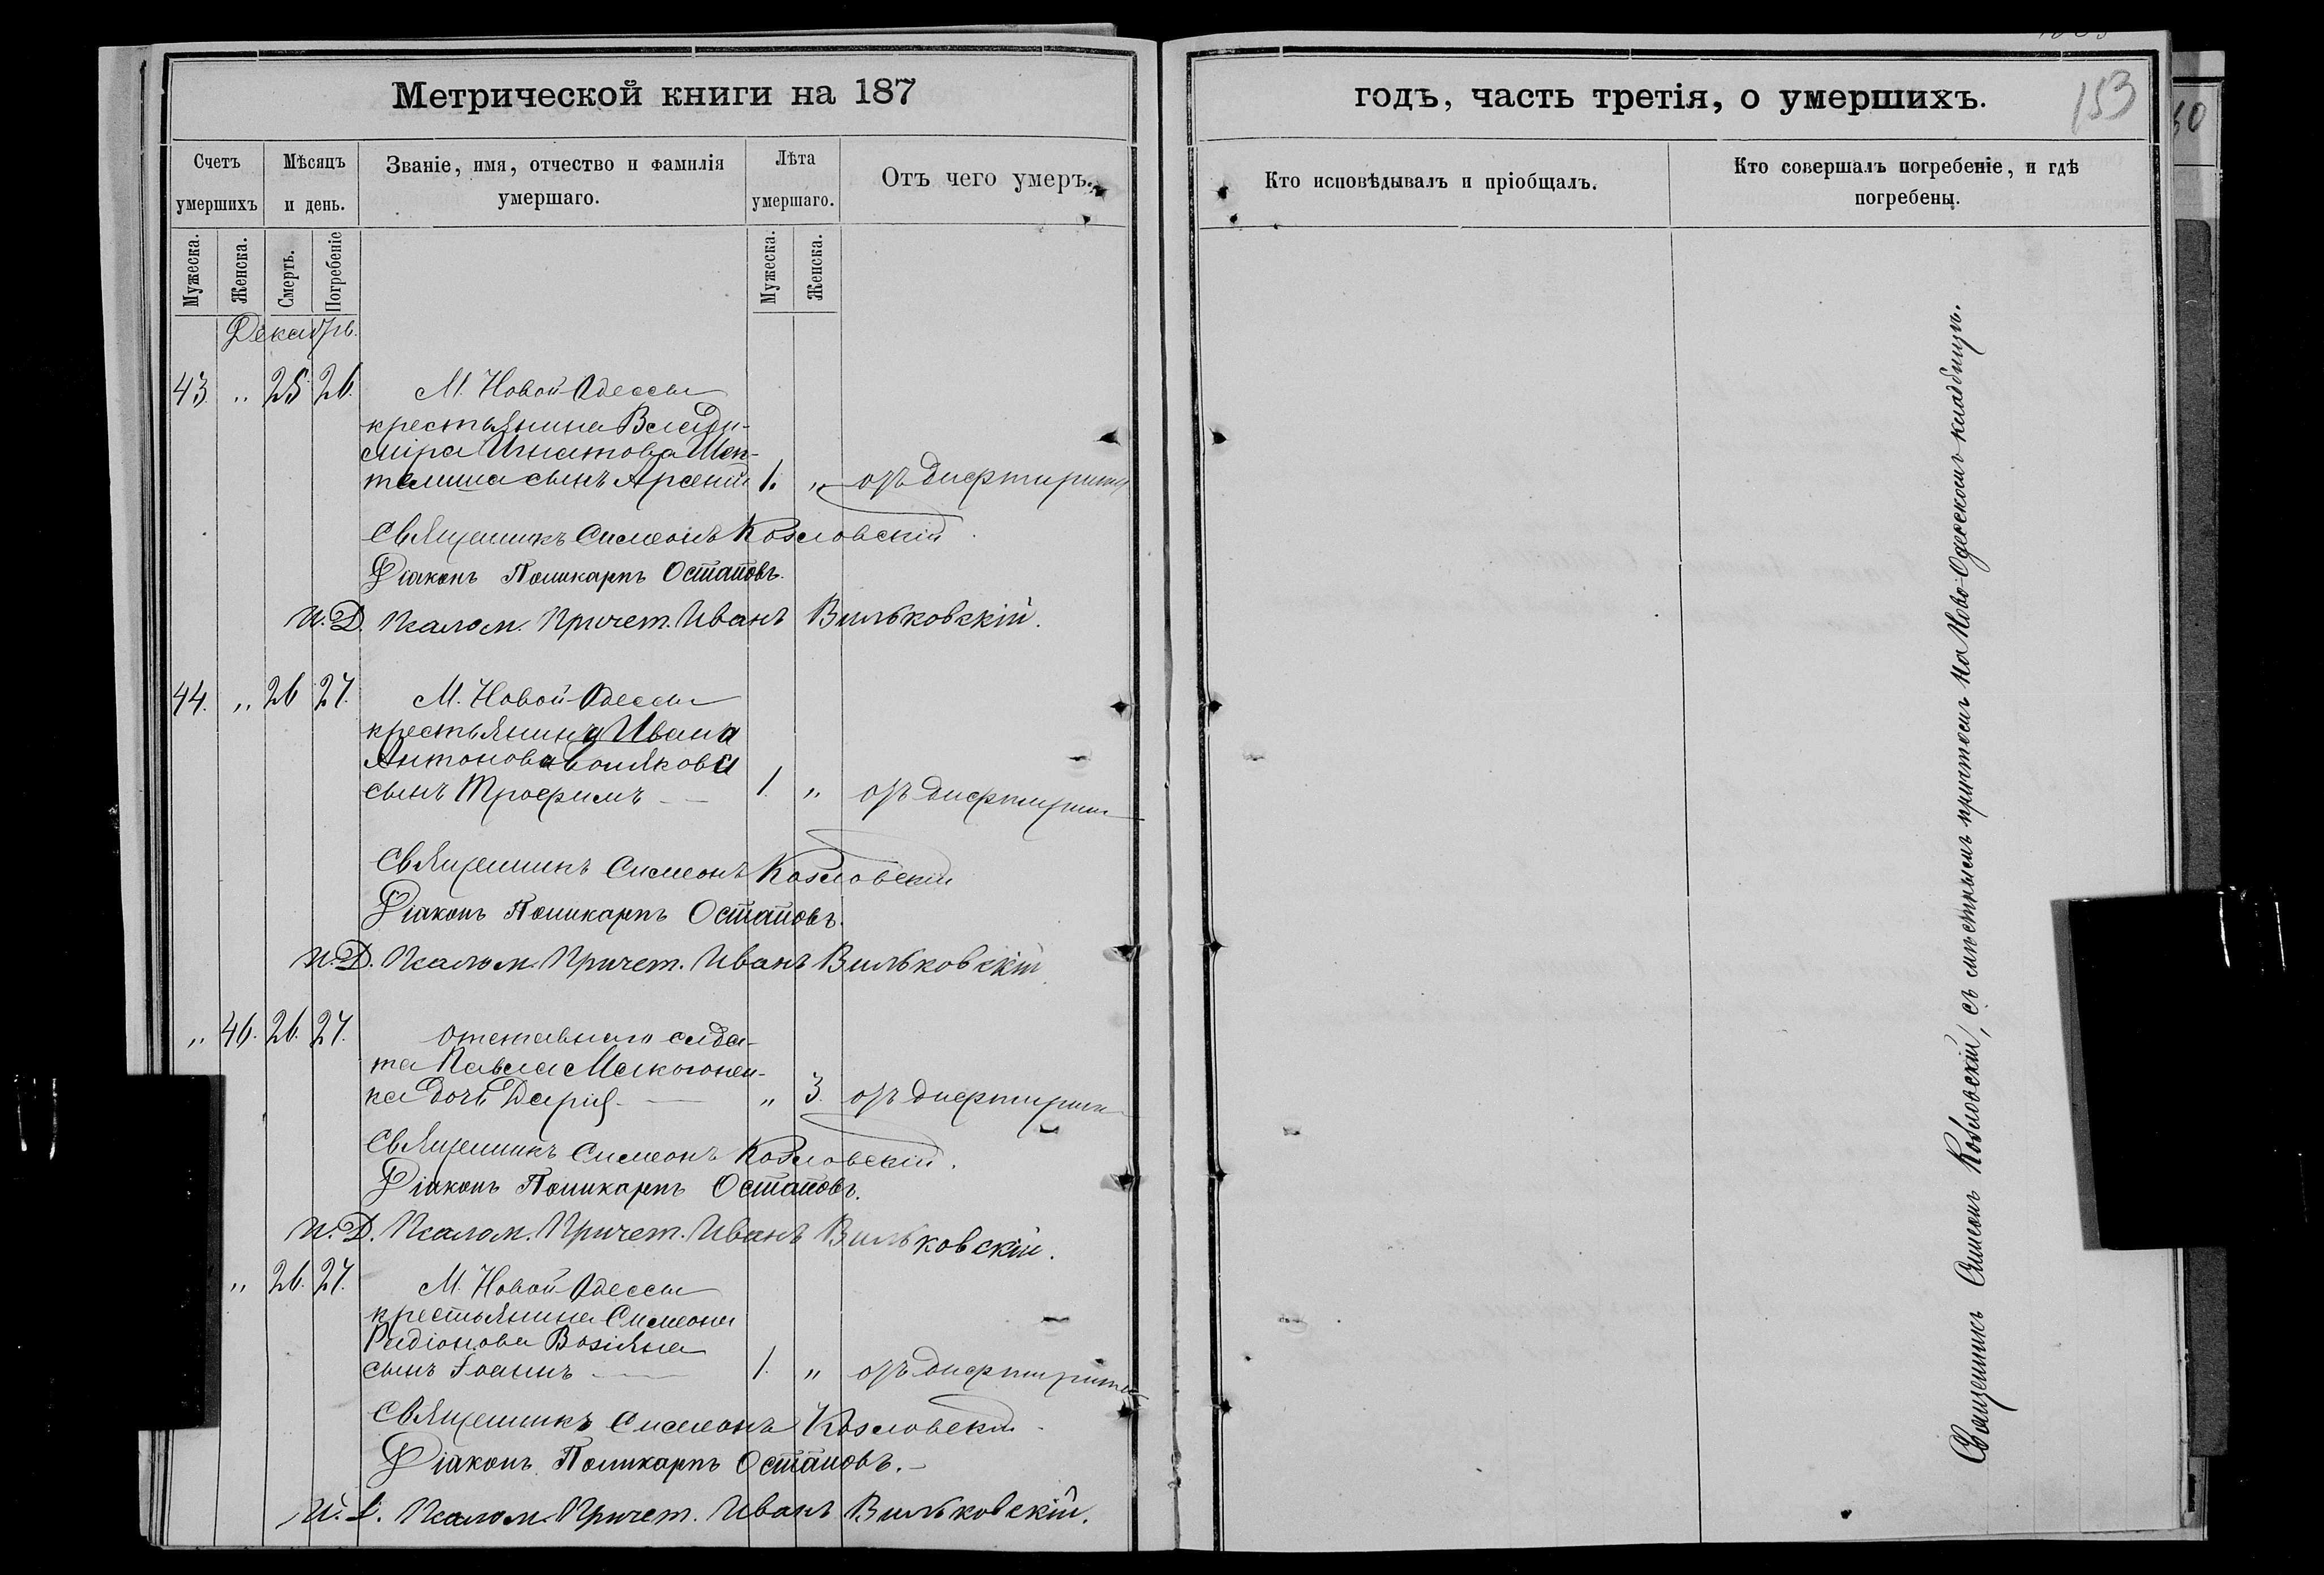 Метрической книги на 187
Счетъ умершихъ
Мѣсяцъ и день.
Званіе, имя, отчество и фамилія умершаго.
Лѣта умершаго.
Отъ чего умеръ.
Мужеска.
Женска.
Смерть.
Погребеніе
Мужеска.
Женска.
Декабрь.
43. „ 25. 26. М. Новой-Одессы
крестьянина Влади-
міра Игнатова
сынъ Арсеній 1. „ отъ дифтирита
Священникъ Симеонъ Козловскій.
Діаконъ Поликарпъ Остаповъ.
И. Д. Псалом. Причет. Иванъ Вильковскій.
44. „ 26 27. М. Новой-Одессы
крестьянина Ивана
Антонова
сынъ Трофимъ 1. „ отъ дифтирита
Священникъ Симеонъ Козловскій
Діаконъ Поликарпъ Остаповъ.
И. Д. Псалом. Причет. Иванъ Вильковскій.
„ 46. 26. 27. Отставнаго солда-
та Павла Макогонен-
ка дочь Дарія „ 3. отъ дифтирита
Священникъ Симеонъ Козловскій.
Діаконъ Поликарпъ Остаповъ.
И. Д. Псалом. Причет. Иванъ Вильковскій.
„ 26. 27. М. Новой-Одессы
крестьянина Симеона
Радіонова Возіяна
сынъ Іоаннъ 1. „ отъ дифтирита
Священникъ Симеонъ Козловскій
Діаконъ Поликарпъ Остаповъ.
И. Д. Псалом. Причет. Иванъ Вильковскій.
годъ, часть третія, о умершихъ.
153
Кто исповѣдывалъ и пріобщалъ.
Кто совершалъ погребеніе, и гдѣ
погребены.
Священникъ Симеонъ Козловскій, съ мѣстнымъ причтомъ на Ново-Одесскомъ кладбищѣ.